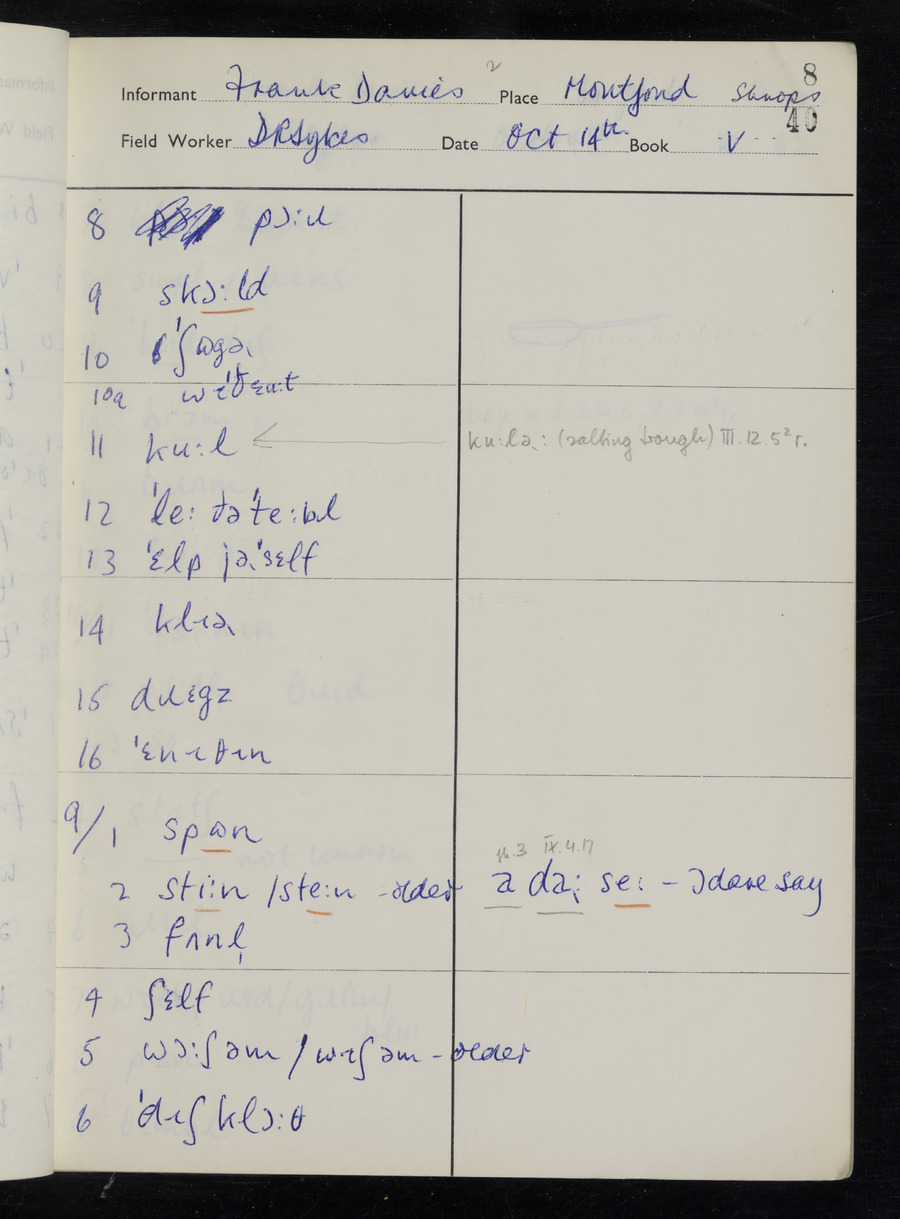 8
Informant Frank Davies 2 Place Montford Shrops
40
Field Worker DRSykes Date Oct 14th Book V
8 pɔːɹ
9 skɔːld
10 ˈʃʊgəɹ
10a wɪˈðɛʊt
11 kuːl
kuːlə : (salting trough) III.12.5² r.
12 ˈleː ðə ˈteːbl
13 ˈɛlp jəˈsɛlf
14 klɪə
15 dɹɛgz
16 ˈɛnɪθɪn
9/1 spʊn
2 stiːn / steːn - older
ph.3 IX.4.17
a dəː seː - I dare say
3 fʌnl̩
4 ʃɛlf
5 wɔːʃəm / wɪʃəm - older
6 ˈdɪʃklɔːθ